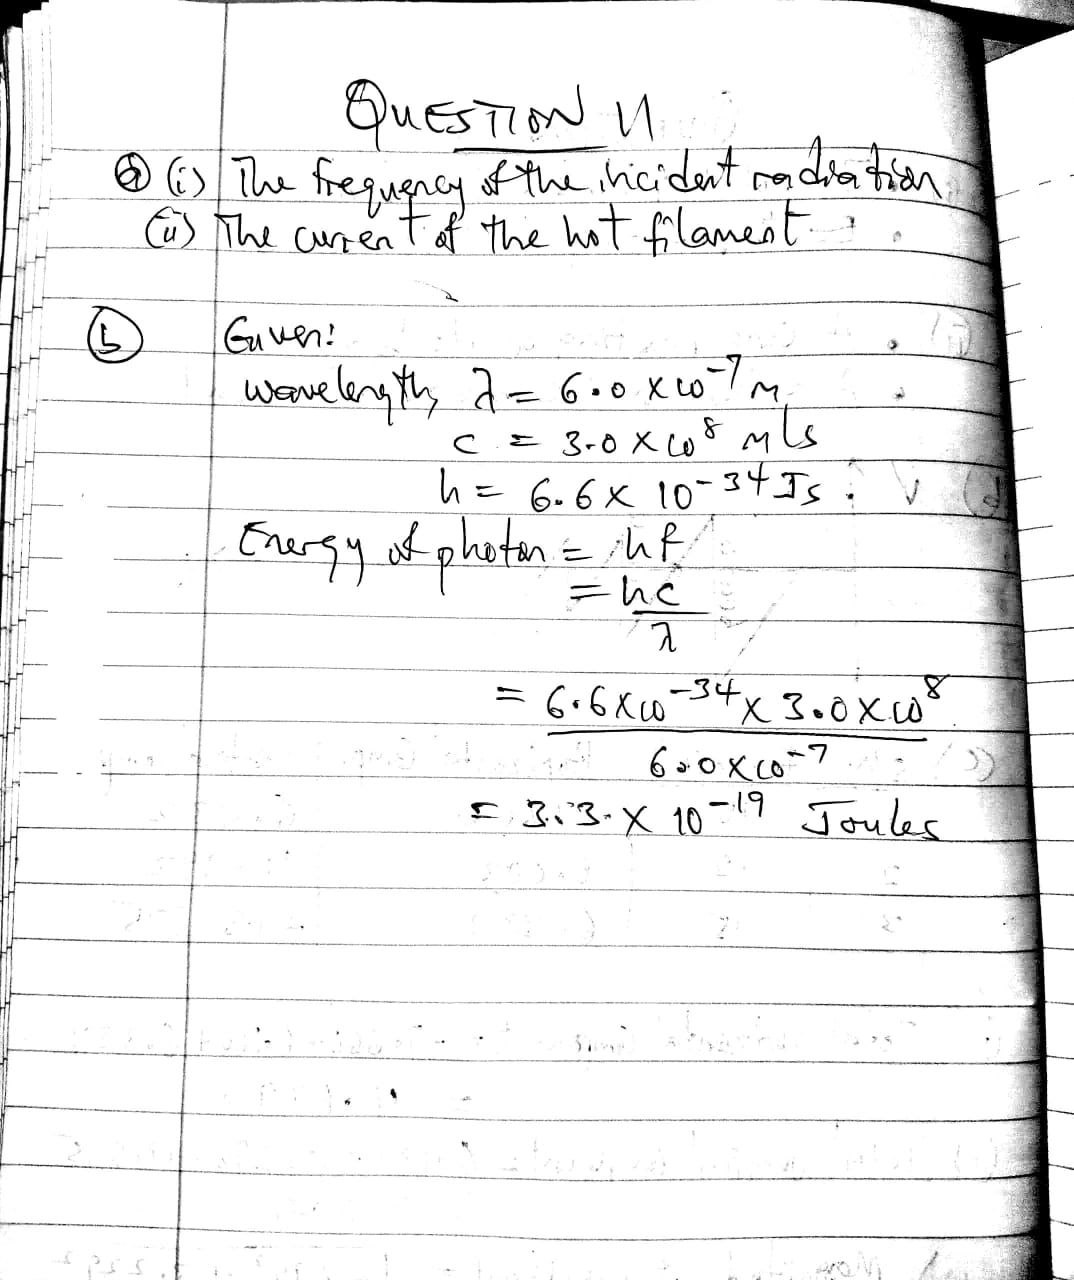 QUESTION 11
(a) (i) The frequency of the incident radiation
(ii) The current of the hot filament
(b) Given:
wavelength, λ = 6.0 x 10⁻⁷ m
c = 3.0 x 10⁸ m/s
h = 6.6 x 10⁻³⁴ Js
Energy of photon = hf
= hc
λ
= 6.6 x 10⁻³⁴ x 3.0 x 10⁸
6.0 x 10⁻⁷
= 3.3 x 10⁻¹⁹ Joules